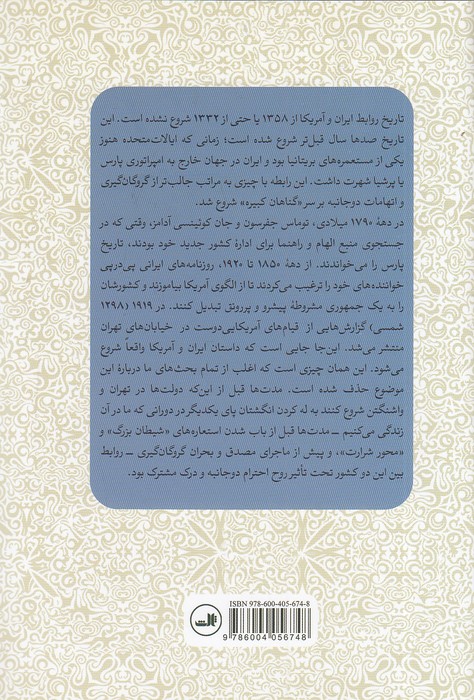 تاریخ روابط ایران و آمریکا از ۱۳۵۸ یا حتی از ۱۳۳۲ شروع نشده است. این
تاریخ صدها سال قبل‌تر شروع شده است؛ زمانی که ایالات‌متحده هنوز
یکی از مستعمره‌های بریتانیا بود و ایران در جهان خارج به امپراتوری پارس
یا پرشیا شهرت داشت. این رابطه با چیزی به مراتب جالب‌تر از گروگان‌گیری
و اتهامات دوجانبه بر سر «گناهان کبیره» شروع شد.
در دههٔ ۱۷۹۰ میلادی، توماس جفرسون و جان کوئینسی آدامز، وقتی که در
جستجوی منبع الهام و راهنما برای ادارهٔ کشور جدید خود بودند، تاریخ
پارس را می‌خواندند. از دههٔ ۱۸۵۰ تا ۱۹۲۰، روزنامه‌های ایرانی پی‌درپی
خواننده‌های خود را ترغیب می‌کردند تا از الگوی آمریکا بیاموزند و کشورشان
را به یک جمهوری مشروطهٔ پیشرو و پررونق تبدیل کنند. در ۱۹۱۹ (۱۲۹۸
شمسی) گزارش‌هایی از قیام‌های آمریکایی‌دوست در خیابان‌های تهران
منتشر می‌شد. این‌جا جایی است که داستان ایران و آمریکا واقعاً شروع
می‌شود. این همان چیزی است که اغلب از تمام بحث‌های ما دربارهٔ این
موضوع حذف شده است. مدت‌ها قبل از این‌که دولت‌ها در تهران و
واشنگتن شروع کنند به له کردن انگشتان پای یکدیگر در دورانی که ما در آن
زندگی می‌کنیم ــ مدت‌ها قبل از باب شدن استعاره‌های «شیطان بزرگ» و
«محور شرارت»، و پیش از ماجرای مصدق و بحران گروگان‌گیری ــ روابط
بین این دو کشور تحت تأثیر روح احترام دوجانبه و درک مشترک بود.
ثالث
ISBN 978-600-405-674-8
9 786004 056748